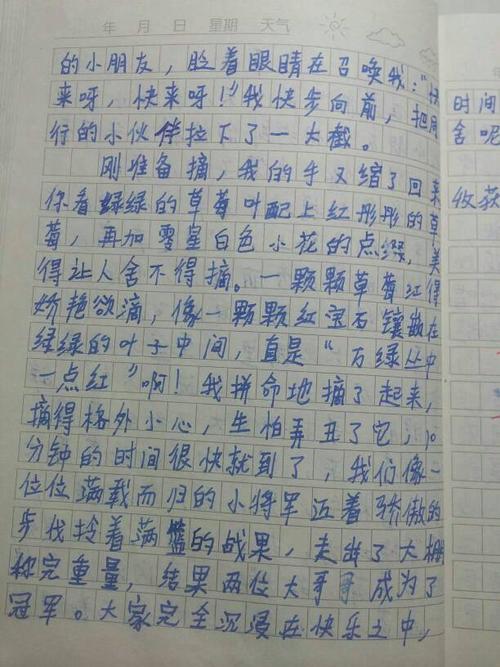 年 月 日 星期 天气
的小朋友，眨着眼睛在召唤我："快
来呀，快来呀！"我快步向前，把同 时间
行的小伙伴拉下了一大截。 舍呢
刚准备摘，我的手又缩了回来
你看绿绿的草莓叶配上红彤彤的草 收获
莓，再加零星白色小花的点缀，美
得让人舍不得摘。一颗颗草莓红得
娇艳欲滴，像一颗颗红宝石镶嵌在
绿绿的叶子中间，直是"万绿丛中
一点红"啊！我拼命地摘了起来，
摘得格外小心，生怕弄丑了它，10
分钟的时间很快就到了，我们像一
位位满载而归的小将军迈着骄傲的
步伐拎着满篮的战果，走出了大棚
称完重量，结果两位大哥哥成为了
冠军。大家完全沉浸在快乐之中，